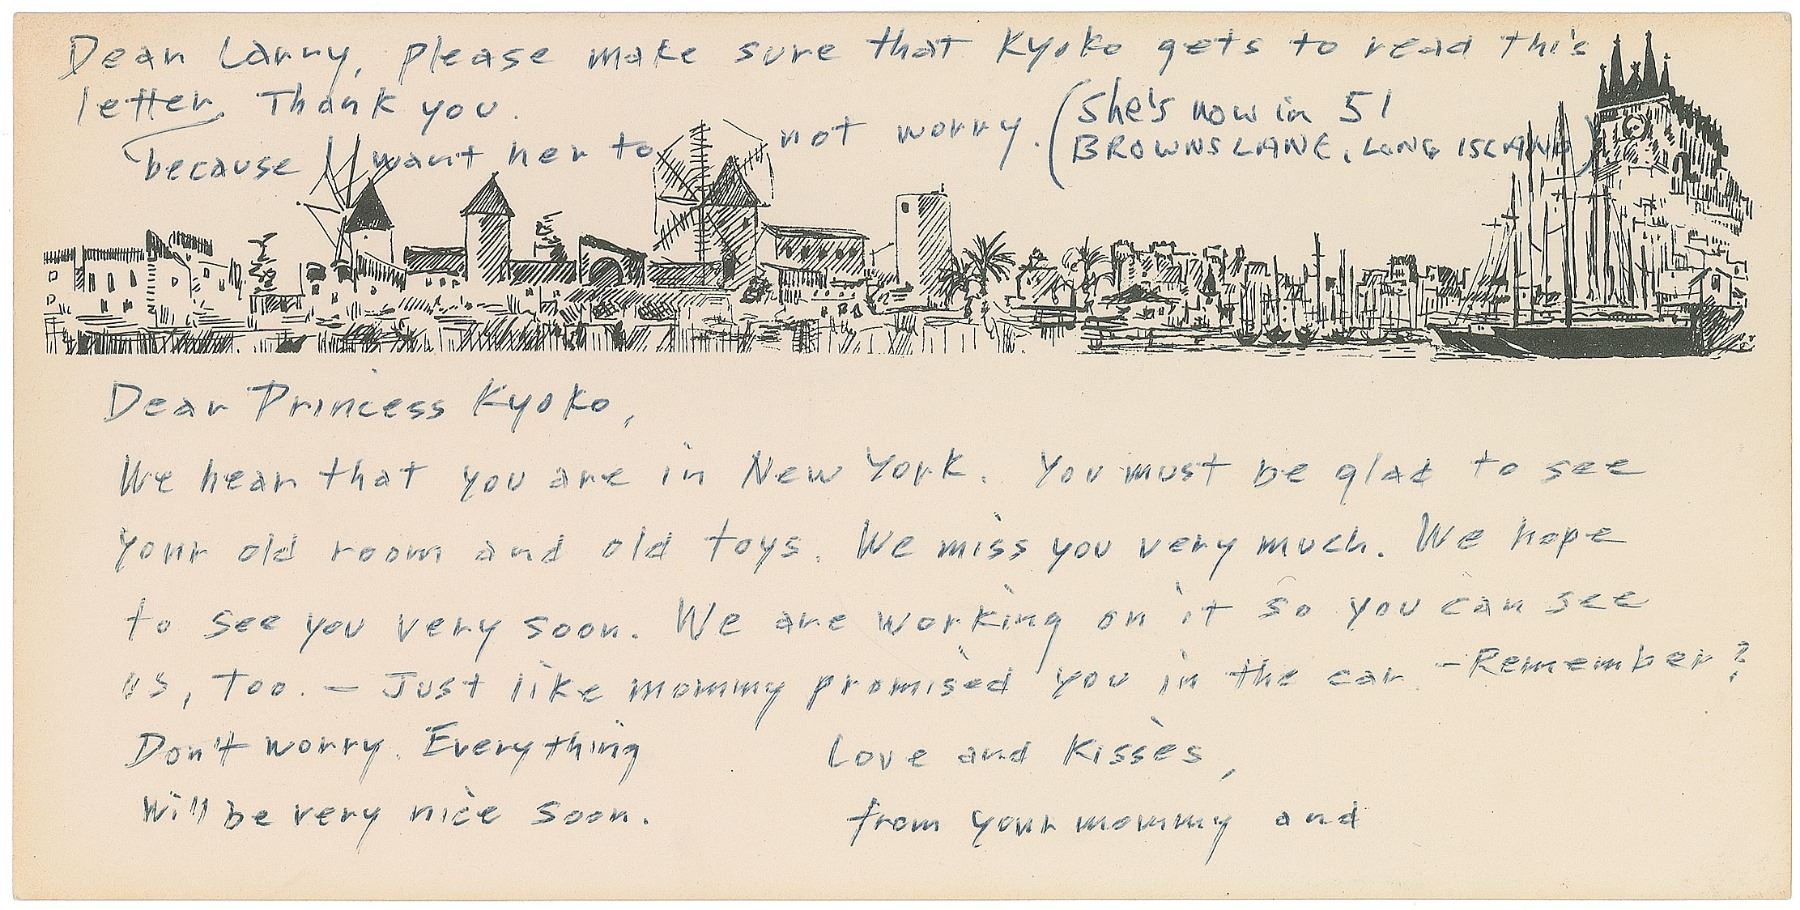 Dear Larry, please make sure that Kyoko gets to read this
letter. Thank you.
because I want her to not worry. (She's now in 51
BROWNS LANE, LONG ISLAND)
Dear Princess Kyoko,
We hear that you are in New York. You must be glad to see
your old room and old toys. We miss you very much. We hope
to see you very soon. We are working on it so you can see
us, too. – Just like mommy promised you in the car – Remember?
Don't worry. Everything
will be very nice soon.
Love and Kisses,
from your mommy and